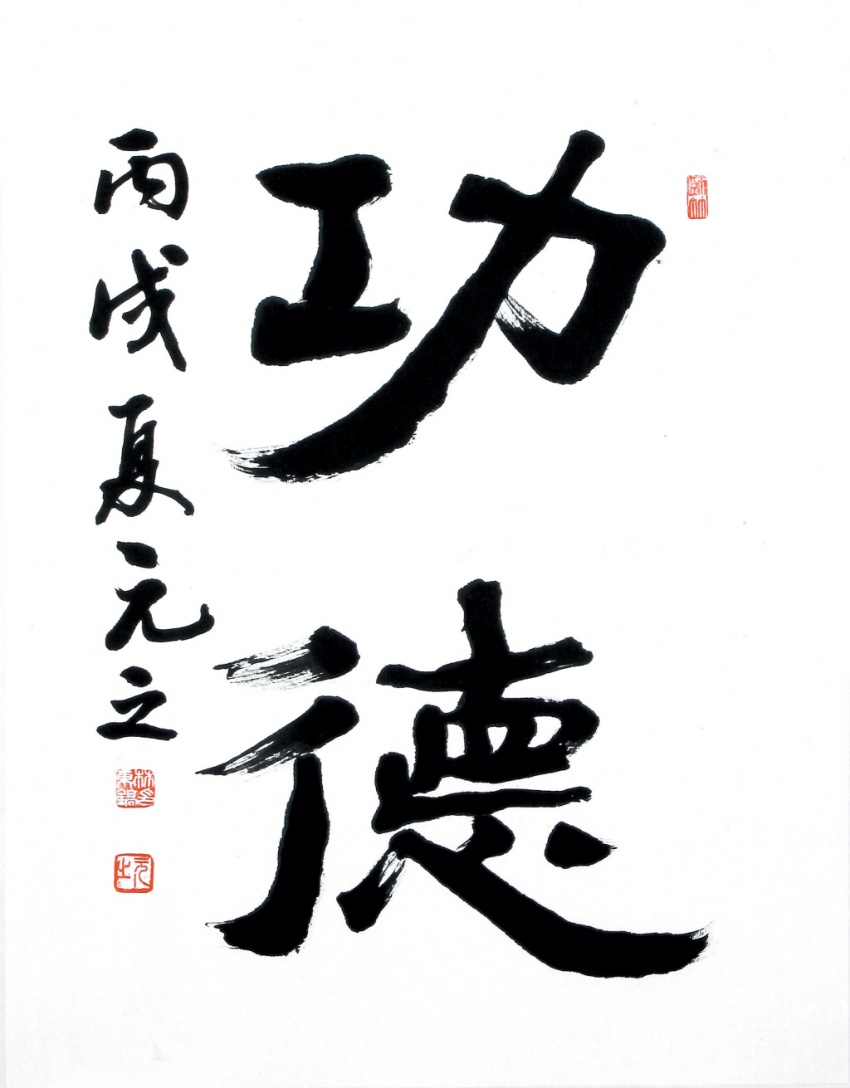 功德
丙戌夏元之